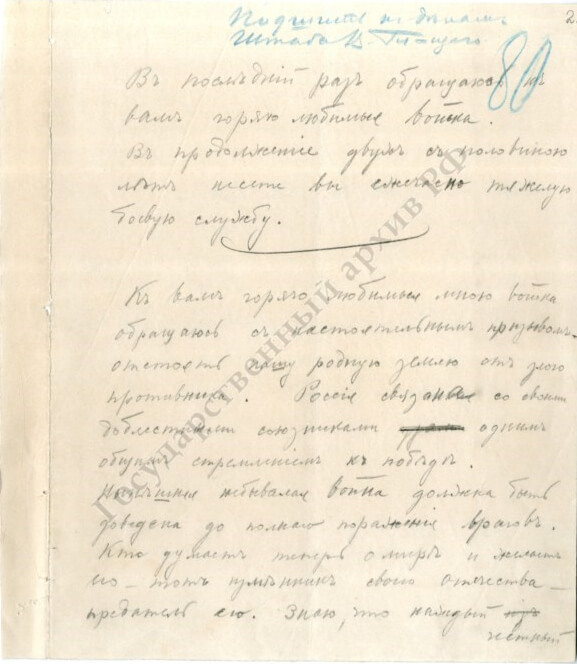 2
Подшить къ дѣламъ
Штаба В. Гл-щаго
80
Въ послѣдній разъ обращаюсь къ
вамъ горячо любимыя войска.
Въ продолженіе двухъ съ половиною
лѣтъ несете вы ежечасно тяжелую
боевую службу.
Къ вамъ горячо любимыя мною войска
обращаюсь съ настоятельнымъ призывомъ
отстоять нашу родную землю отъ злого
противника. Россія связана со своими
доблестными союзниками однимъ
общимъ стремленіемъ къ побѣдѣ.
Нынѣшняя небывалая война должна быть
доведена до полнаго пораженія враговъ.
Кто думаетъ теперь о мирѣ и желаетъ
его - тотъ измѣнникъ своего отечества -
предатель его. Знаю, что каждый изъ
честный
Государственный архив РФ